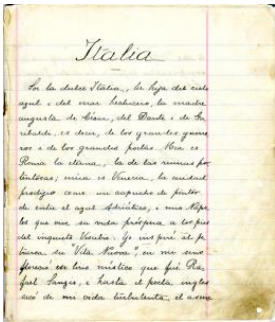 Italia
Soi la dulce Italia, la hija del cielo
azul i del mar hechicero, la madre
augusta de César, del Dante i de Ga
ribaldi, es decir, de los grandes guerre
ros i de los grandes poetas. Mía es
Roma la eterna, la de las ruinas por
tentosas; mía es Venecia, la ciudad
prodigio como un capricho de pintor
de entre el agua Adriática; i mía Nápo
les que vive su vida próspera a los pies
del inquieto Vesubio. Yo inspiré al
su "Vita Nuova"; en mi seno
floreció ese lirio místico que fué Ra
fael Sanzio, i hasta el poeta inglés
de mi vida turbulenta, el